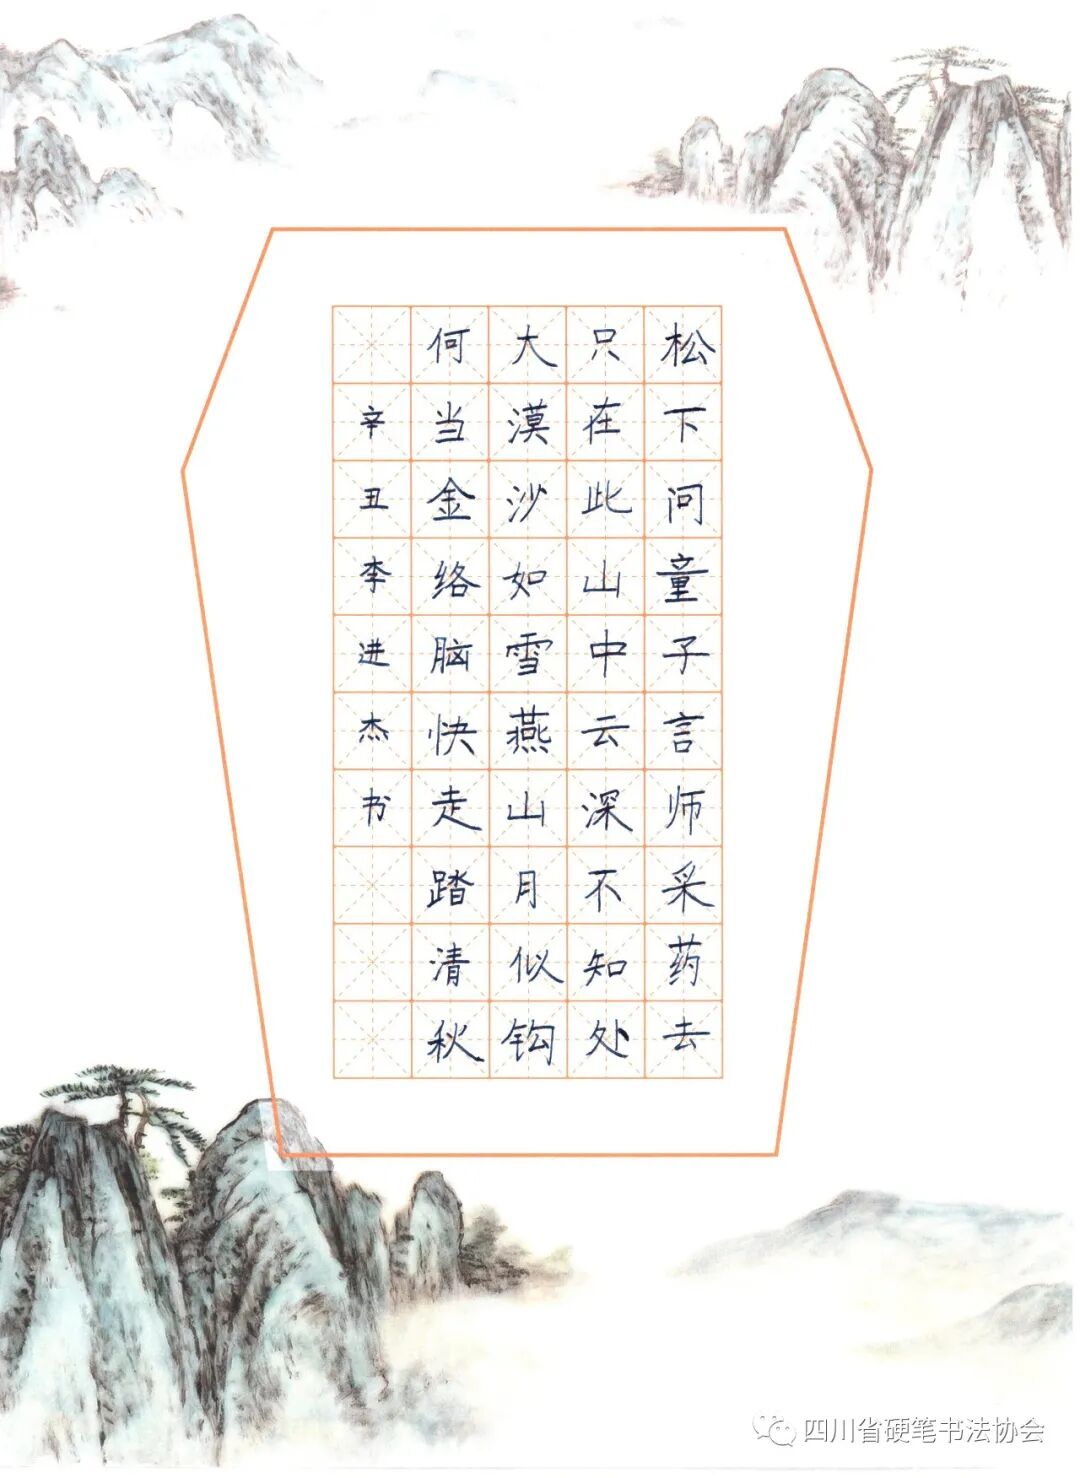 松下问童子言师采药去
只在此山中云深不知处
大漠沙如雪燕山月似钩
何当金络脑快走踏清秋
辛丑李进杰书
四川省硬笔书法协会